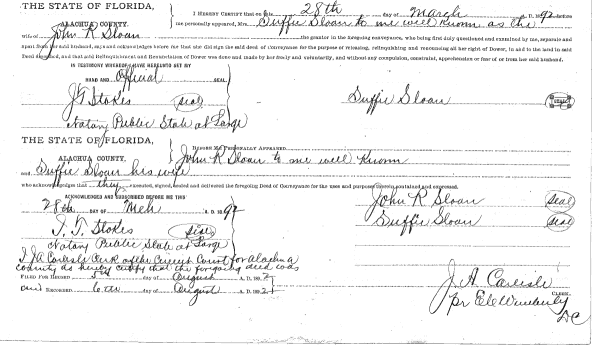 THE STATE OF FLORIDA,
ALACHUA COUNTY.
I HEREBY CERTIFY that on this 28th day of March A. D. 1892 before
me personally appeared, Mrs. Suffie Sloan to me well known as the
wife of John R Sloan the grantor in the foregoing conveyance, who being first duly questioned and examined by me, separate and
apart from her said husband, says and acknowledges before me that she did sign the said deed of Conveyance for the purpose of releasing, relinquishing and renouncing all her right of Dower, in and to the land in said
Deed described, and that said Relinquishment and Renunciation of Dower was done and made by her freely and voluntarily, and without any compulsion, constraint, apprehension or fear of or from her said husband.
IN TESTIMONY WHEREOF I HAVE HEREUNTO SET MY
HAND AND Official SEAL
J T Stokes (seal)
Suffie Sloan (SEAL)
Notary Public State at Large
THE STATE OF FLORIDA,
ALACHUA COUNTY.
BEFORE ME PERSONALLY APPEARED
John R Sloan to me well known
and Suffie Sloan his wife
who acknowledges that they executed, signed, sealed and delivered the foregoing Deed of Conveyance for the uses and purposes therein contained and expressed.
ACKNOWLEDGED AND SUBSCRIBED BEFORE ME THIS
28th DAY OF Mch A. D. 1892
John R Sloan (seal)
Suffie Sloan (seal)
J. T. Stokes (seal)
Notary Public State at Large
I J A Carlisle Clerk of the Circuit Court for Alachua
county do hereby certify that the foregoing deed was
FILED FOR RECORD day of August A. D. 1892
and RECORDED 6th day of August A. D. 1892
J. A. Carlisle
CLERK.
pr
DC